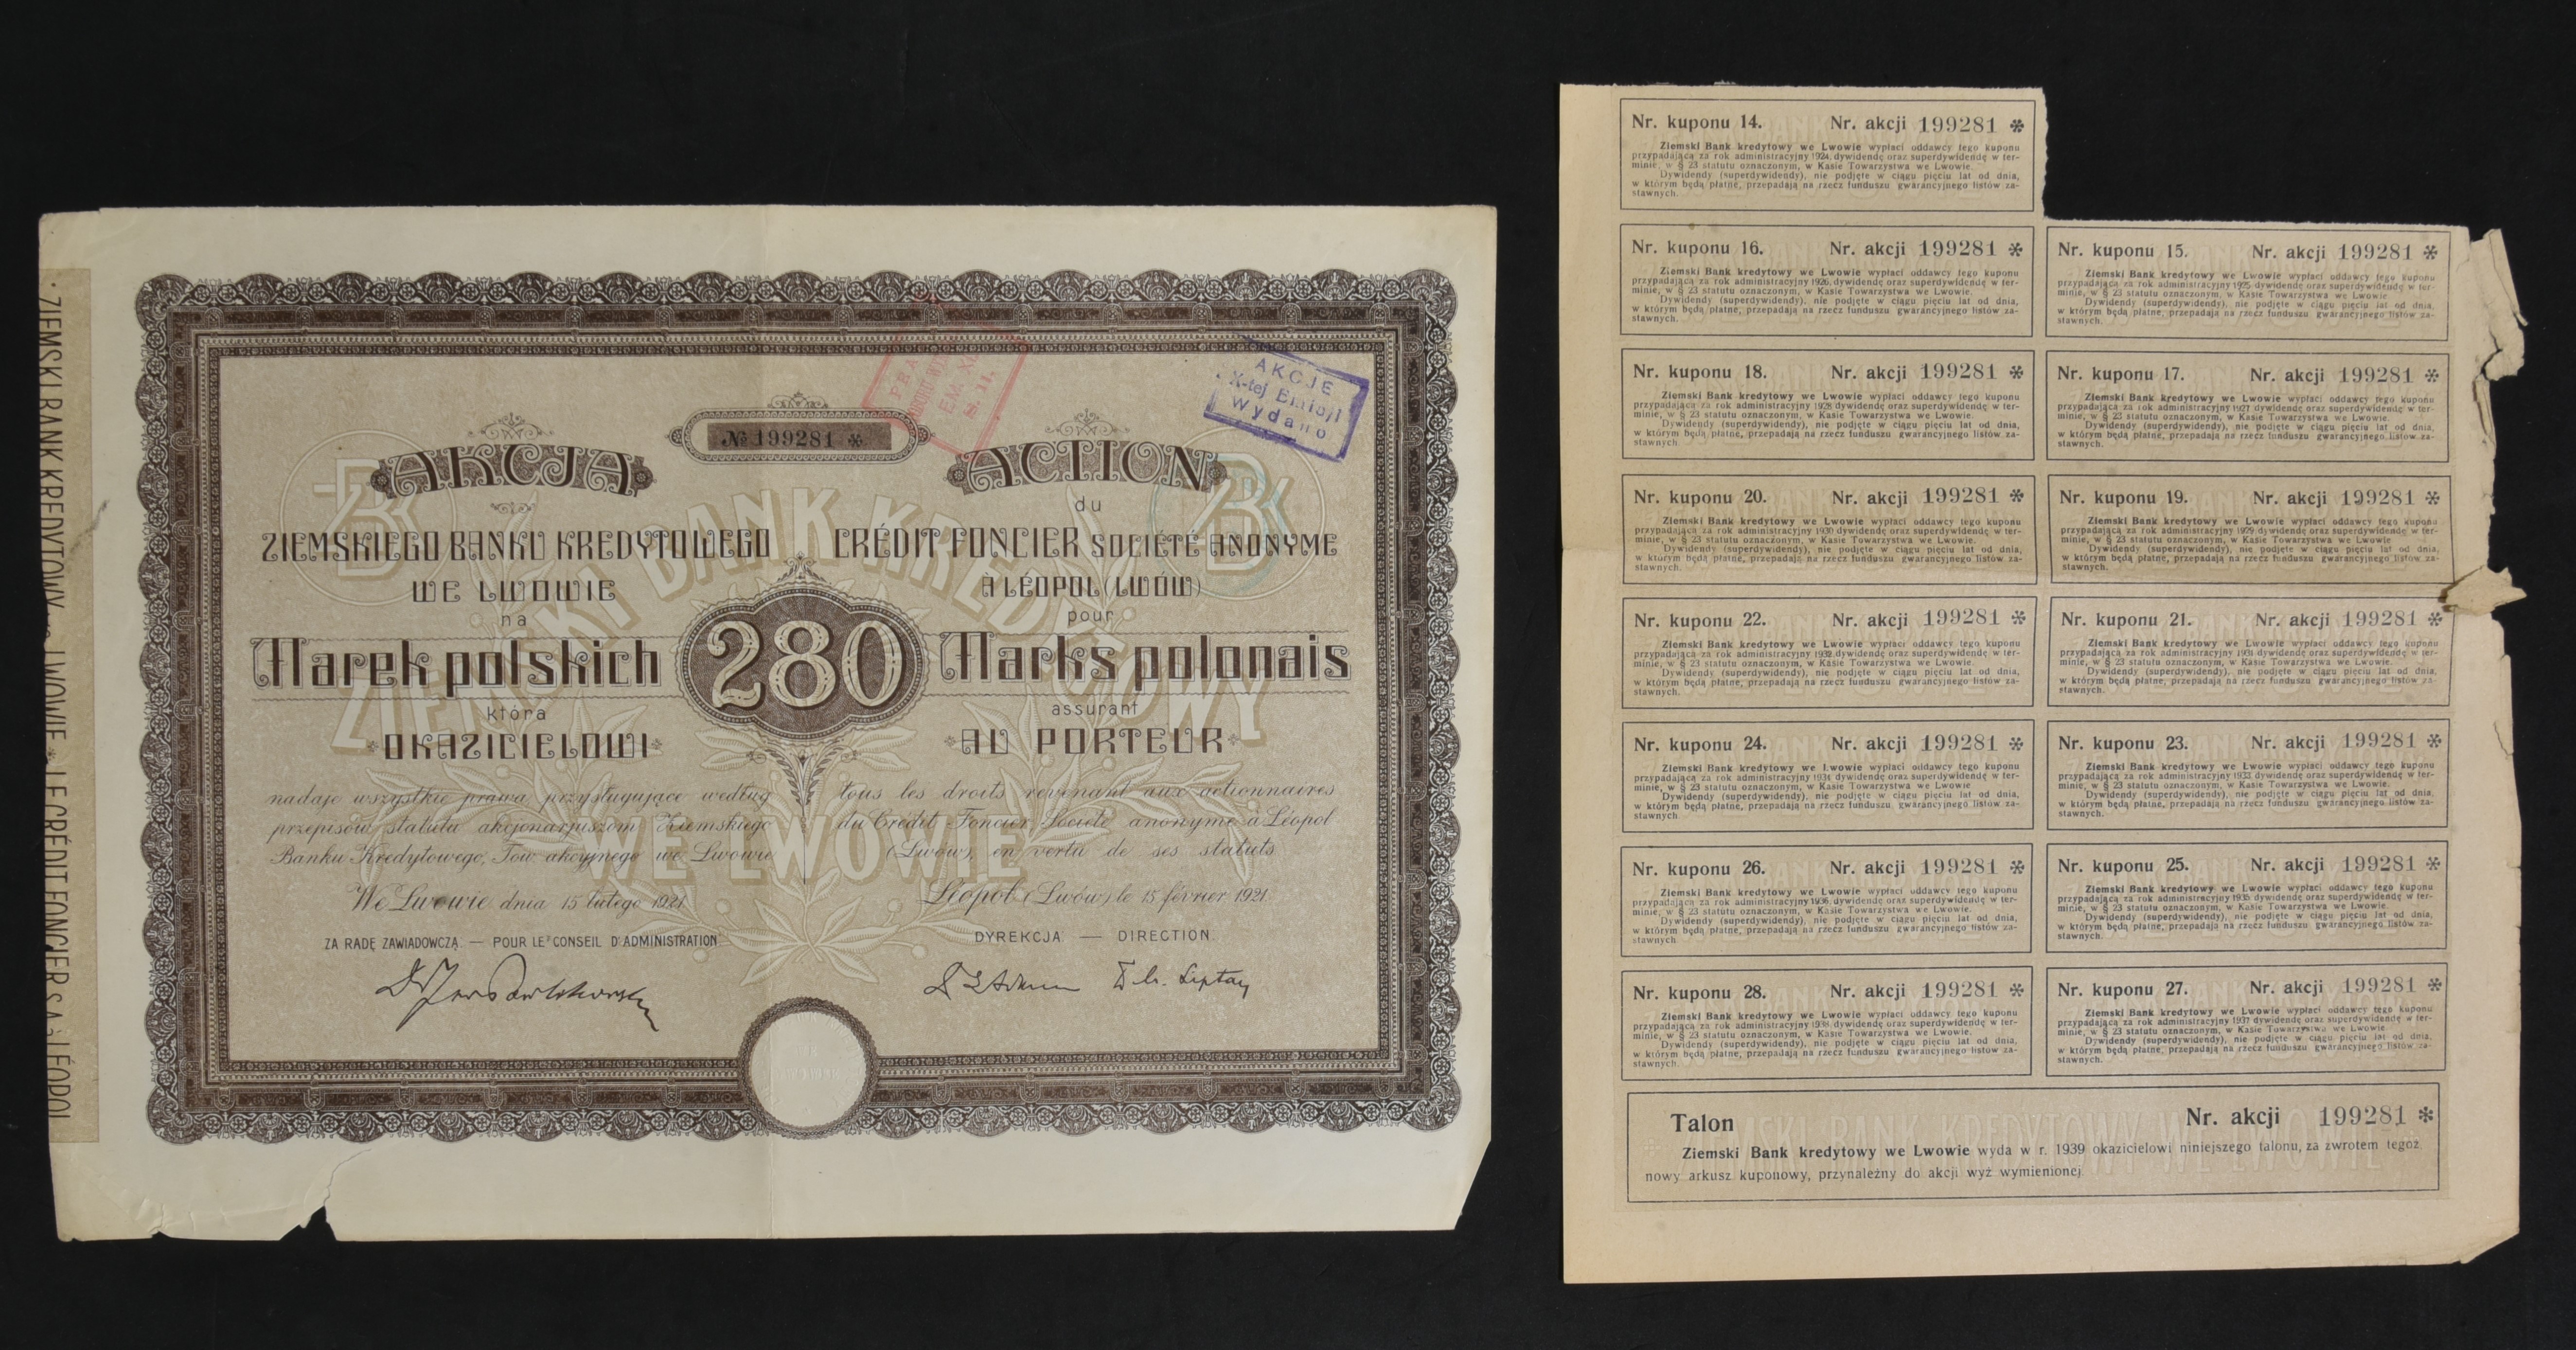 ZIEMSKI BANK KREDYTOWY we LWOWIE * LE CRÉDIT FONCIER S.A. à LÉOPOL
№ 199281 *
AKCJE
X-tej Emisji
Wydano
EM. XI.
AKCJA
ZIEMSKIEGO BANKU KREDYTOWEGO
WE LWOWIE
na
Marek polskich
280
która
OKAZICIELOWI
nadaje wszystkie prawa przysługujące według
przepisów statutu akcjonarjuszom Ziemskiego
Banku Kredytowego, Tow. akcyjnego we Lwowie
We Lwowie dnia 15 lutego 1921.
ZA RADĘ ZAWIADOWCZĄ. — POUR LE CONSEIL D'ADMINISTRATION
ACTION
du
CRÉDIT FONCIER SOCIÉTÉ ANONYME
À LÉOPOL (LWÓW)
pour
Marks polonais
assurant
AU PORTEUR
tous les droits revenant aux actionnaires
du Crédit Foncier Société anonyme à Léopol
(Lwów), en vertu de ses statuts
Léopol (Lwów) le 15 février 1921.
DYREKCJA. — DIRECTION.
ZIEMSKI BANK KREDYTOWY
WE LWOWIE
Nr. kuponu 14. Nr. akcji 199281 *
Ziemski Bank kredytowy we Lwowie wypłaci oddawcy tego kuponu
przypadającą za rok administracyjny 1924 dywidendę oraz superdywidendę w ter-
minie, w § 23 statutu oznaczonym, w Kasie Towarzystwa we Lwowie.
Dywidendy (superdywidendy), nie podjęte w ciągu pięciu lat od dnia,
w którym będą płatne, przepadają na rzecz funduszu gwarancyjnego listów za-
stawnych.
Nr. kuponu 16. Nr. akcji 199281 *
Ziemski Bank kredytowy we Lwowie wypłaci oddawcy tego kuponu
przypadającą za rok administracyjny 1926 dywidendę oraz superdywidendę w ter-
minie, w § 23 statutu oznaczonym, w Kasie Towarzystwa we Lwowie.
Dywidendy (superdywidendy), nie podjęte w ciągu pięciu lat od dnia,
w którym będą płatne, przepadają na rzecz funduszu gwarancyjnego listów za-
stawnych.
Nr. kuponu 15. Nr. akcji 199281 *
Ziemski Bank kredytowy we Lwowie wypłaci oddawcy tego kuponu
przypadającą za rok administracyjny 1925 dywidendę oraz superdywidendę w ter-
minie, w § 23 statutu oznaczonym, w Kasie Towarzystwa we Lwowie
Dywidendy (superdywidendy), nie podjęte w ciągu pięciu lat od dnia,
w którym będą płatne, przepadają na rzecz funduszu gwarancyjnego listów za-
stawnych.
Nr. kuponu 18. Nr. akcji 199281 *
Ziemski Bank kredytowy we Lwowie wypłaci oddawcy tego kuponu
przypadającą za rok administracyjny 1928 dywidendę oraz superdywidendę w ter-
minie, w § 23 statutu oznaczonym, w Kasie Towarzystwa we Lwowie.
Dywidendy (superdywidendy), nie podjęte w ciągu pięciu lat od dnia,
w którym będą płatne, przepadają na rzecz funduszu gwarancyjnego listów za-
stawnych.
Nr. kuponu 17. Nr. akcji 199281 *
Ziemski Bank kredytowy we Lwowie wypłaci oddawcy tego kuponu
przypadającą za rok administracyjny 1927 dywidendę oraz superdywidendę w ter-
minie, w § 23 statutu oznaczonym, w Kasie Towarzystwa we Lwowie.
Dywidendy (superdywidendy), nie podjęte w ciągu pięciu lat od dnia,
w którym będą płatne, przepadają na rzecz funduszu gwarancyjnego listów za-
stawnych.
Nr. kuponu 20. Nr. akcji 199281 *
Ziemski Bank kredytowy we Lwowie wypłaci oddawcy tego kuponu
przypadającą za rok administracyjny 1930 dywidendę oraz superdywidendę w ter-
minie, w § 23 statutu oznaczonym, w Kasie Towarzystwa we Lwowie.
Dywidendy (superdywidendy), nie podjęte w ciągu pięciu lat od dnia,
w którym będą płatne, przepadają na rzecz funduszu gwarancyjnego listów za-
stawnych.
Nr. kuponu 19. Nr. akcji 199281 *
Ziemski Bank kredytowy we Lwowie wypłaci oddawcy tego kuponu
przypadającą za rok administracyjny 1929 dywidendę oraz superdywidendę w ter-
minie, w § 23 statutu oznaczonym, w Kasie Towarzystwa we Lwowie
Dywidendy (superdywidendy), nie podjęte w ciągu pięciu lat od dnia,
w którym będą płatne, przepadają na rzecz funduszu gwarancyjnego listów za-
stawnych.
Nr. kuponu 22. Nr. akcji 199281 *
Ziemski Bank kredytowy we Lwowie wypłaci oddawcy tego kuponu
przypadającą za rok administracyjny 1932 dywidendę oraz superdywidendę w ter-
minie, w § 23 statutu oznaczonym, w Kasie Towarzystwa we Lwowie.
Dywidendy (superdywidendy), nie podjęte w ciągu pięciu lat od dnia,
w którym będą płatne, przepadają na rzecz funduszu gwarancyjnego listów za-
stawnych.
Nr. kuponu 21. Nr. akcji 199281 *
Ziemski Bank kredytowy we Lwowie wypłaci oddawcy tego kuponu
przypadającą za rok administracyjny 1931 dywidendę oraz superdywidendę w ter-
minie, w § 23 statutu oznaczonym, w Kasie Towarzystwa we Lwowie.
Dywidendy (superdywidendy), nie podjęte w ciągu pięciu lat od dnia,
w którym będą płatne, przepadają na rzecz funduszu gwarancyjnego listów za-
stawnych.
Nr. kuponu 24. Nr. akcji 199281 *
Ziemski Bank kredytowy we Lwowie wypłaci oddawcy tego kuponu
przypadającą za rok administracyjny 1934 dywidendę oraz superdywidendę w ter-
minie, w § 23 statutu oznaczonym, w Kasie Towarzystwa we Lwowie.
Dywidendy (superdywidendy), nie podjęte w ciągu pięciu lat od dnia,
w którym będą płatne, przepadają na rzecz funduszu gwarancyjnego listów za-
stawnych.
Nr. kuponu 23. Nr. akcji 199281 *
Ziemski Bank kredytowy we Lwowie wypłaci oddawcy tego kuponu
przypadającą za rok administracyjny 1933 dywidendę oraz superdywidendę w ter-
minie, w § 23 statutu oznaczonym, w Kasie Towarzystwa we Lwowie
Dywidendy (superdywidendy), nie podjęte w ciągu pięciu lat od dnia,
w którym będą płatne, przepadają na rzecz funduszu gwarancyjnego listów za-
stawnych.
Nr. kuponu 26. Nr. akcji 199281 *
Ziemski Bank kredytowy we Lwowie wypłaci oddawcy tego kuponu
przypadającą za rok administracyjny 1936 dywidendę oraz superdywidendę w ter-
minie, w § 23 statutu oznaczonym, w Kasie Towarzystwa we Lwowie.
Dywidendy (superdywidendy), nie podjęte w ciągu pięciu lat od dnia,
w którym będą płatne, przepadają na rzecz funduszu gwarancyjnego listów za-
stawnych.
Nr. kuponu 25. Nr. akcji 199281 *
Ziemski Bank kredytowy we Lwowie wypłaci oddawcy tego kuponu
przypadającą za rok administracyjny 1935 dywidendę oraz superdywidendę w ter-
minie, w § 23 statutu oznaczonym, w Kasie Towarzystwa we Lwowie.
Dywidendy (superdywidendy), nie podjęte w ciągu pięciu lat od dnia,
w którym będą płatne, przepadają na rzecz funduszu gwarancyjnego listów za-
stawnych.
Nr. kuponu 28. Nr. akcji 199281 *
Ziemski Bank kredytowy we Lwowie wypłaci oddawcy tego kuponu
przypadającą za rok administracyjny 1938 dywidendę oraz superdywidendę w ter-
minie, w § 23 statutu oznaczonym, w Kasie Towarzystwa we Lwowie.
Dywidendy (superdywidendy), nie podjęte w ciągu pięciu lat od dnia,
w którym będą płatne, przepadają na rzecz funduszu gwarancyjnego listów za-
stawnych.
Nr. kuponu 27. Nr. akcji 199281 *
Ziemski Bank kredytowy we Lwowie wypłaci oddawcy tego kuponu
przypadającą za rok administracyjny 1937 dywidendę oraz superdywidendę w ter-
minie, w § 23 statutu oznaczonym, w Kasie Towarzystwa we Lwowie
Dywidendy (superdywidendy), nie podjęte w ciągu pięciu lat od dnia,
w którym będą płatne, przepadają na rzecz funduszu gwarancyjnego listów za-
stawnych.
Talon Nr. akcji 199281 *
Ziemski Bank kredytowy we Lwowie wyda w r. 1939 okazicielowi niniejszego talonu, za zwrotem tegoż
nowy arkusz kuponowy, przynależny do akcji wyż wymienionej.